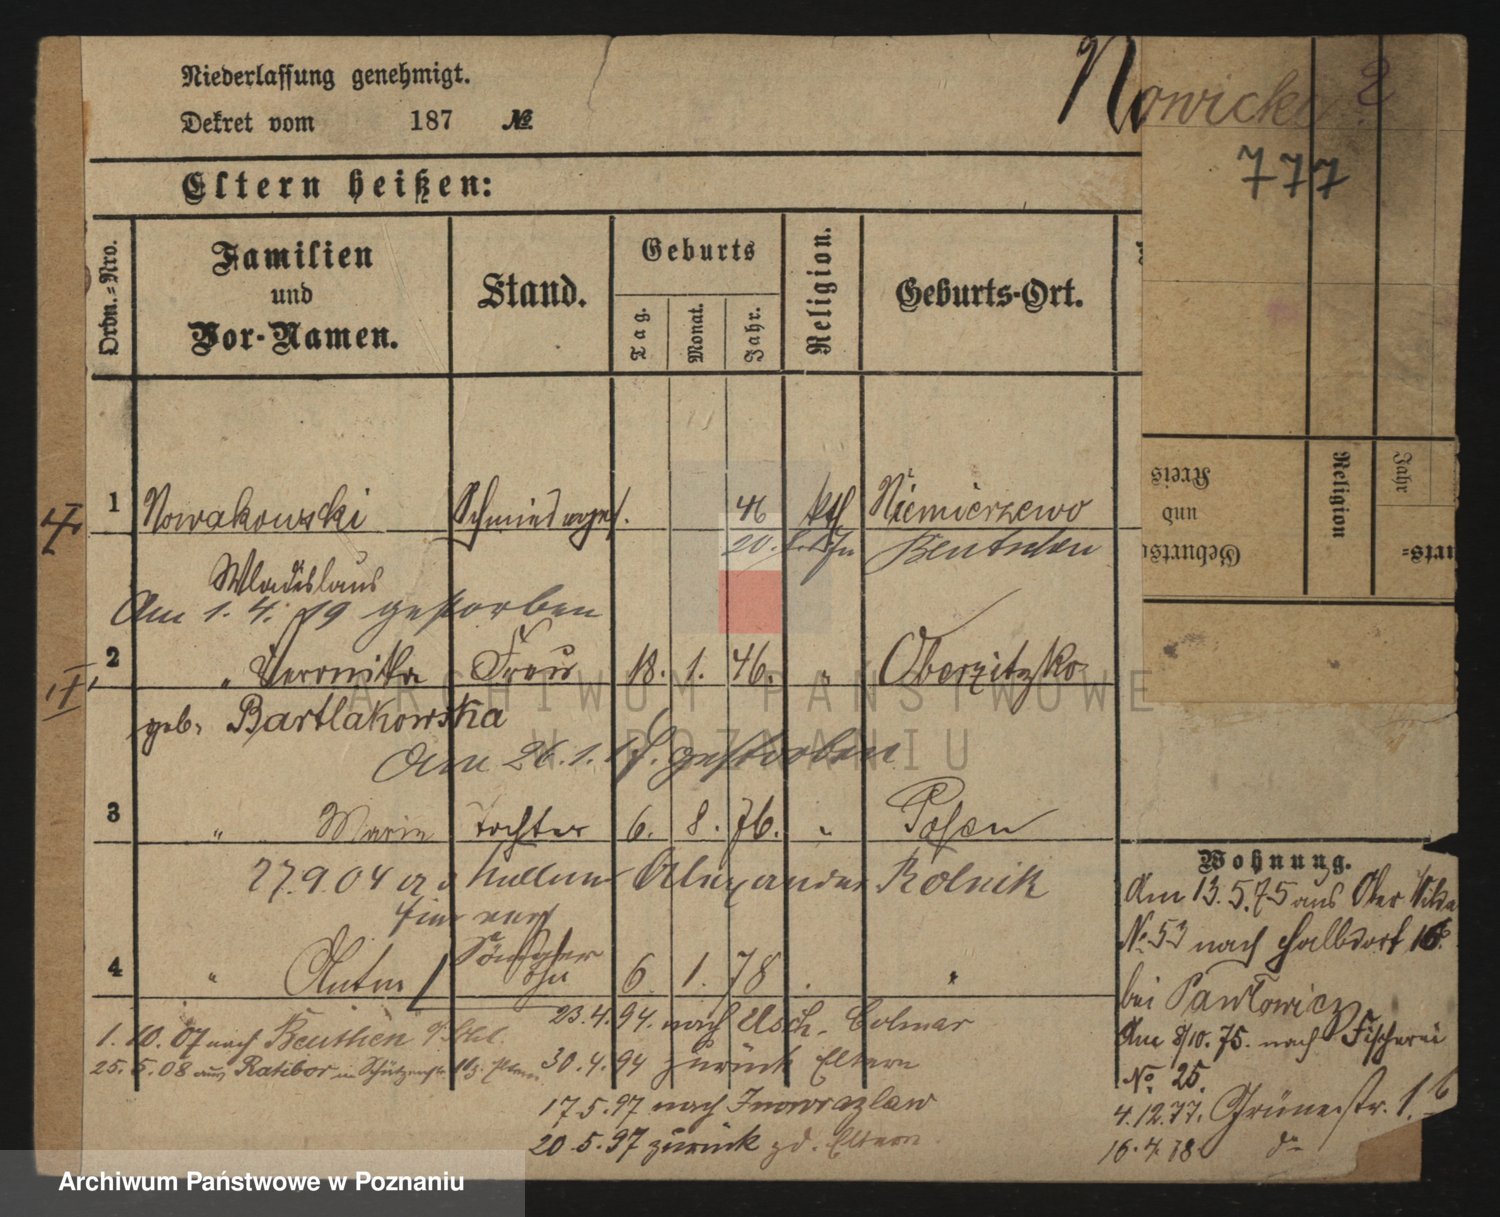 Niederlassung genehmigt.
Dekret vom 187 №
Nowicka 2
777
Eltern heißen:
Ordn.-Nro.
Familien
und
Vor-Namen.
Stand.
Geburts
Tag.
Monat.
Jahr.
Religion.
Geburts-Ort.
Kreis
und
Geburts
Religion
Jahr
rts-
1 Nowakowski 46 kth Niemierzewo
20. Bentschen
Wladislaus
Am 1. 4. 19 gestorben
2 " Veronika Frau 18. 1. 46. " Oberzitzko
geb. Bartlakowska
Am 26. 1. 17. gestorben
3 " Marie Tochter 6. 8. 76. " Posen
27.9.04 Alexander Rolnik
4 " Anton Sohn 6. 1. 78 "
23.4.94. nach Usch. Colmar
1. 10. 07 nach Beuthen
30.4.94 zurück Eltern
25. 5. 08 aus Ratibor in
17.5.97 nach Inowrazlaw
20.5.97 zurück zd. Eltern
Wohnung.
Am 13. 5. 75 aus Ober Wilda
No 53 nach Halbdorf 16
bei Pawlowicz
Am 8/10. 75. nach Fischerei
No. 25.
4.12.77. Grünestr. 1.
16.4.78 do
ARCHIWUM PAŃSTWOWE
W POZNANIU
Archiwum Państwowe w Poznaniu